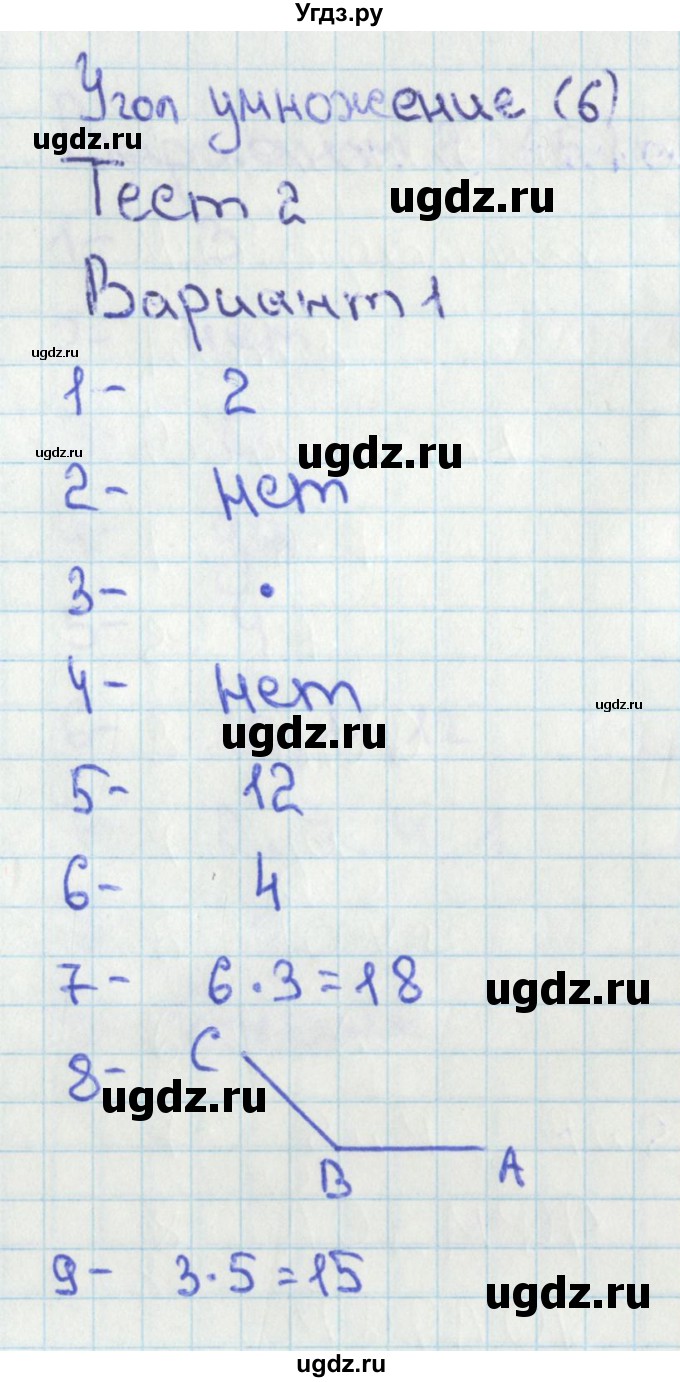 Угдз.ру
Угол умножение (6)
ugdz.ru
Тест 2
ugdz.ru
Вариант 1
ugdz.ru
1- 2
ugdz.ru
ugdz.ru
2- нет
3- •
4- нет
ugdz.ru
ugdz.ru
5- 12
6- 4
7- 6·3=18
ugdz.ru
8- C
ugdz.ru
B A
9- 3·5=15
ugdz.ru
ugdz.ru